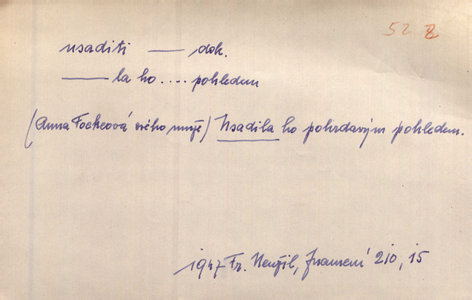 52 8
usaditi — dok.
— la ho .... pohledem
(Anna Fockeová svého muže) Usadila ho pohrdavým pohledem.
1947 Fr. Neužil, Znamení 210, 15